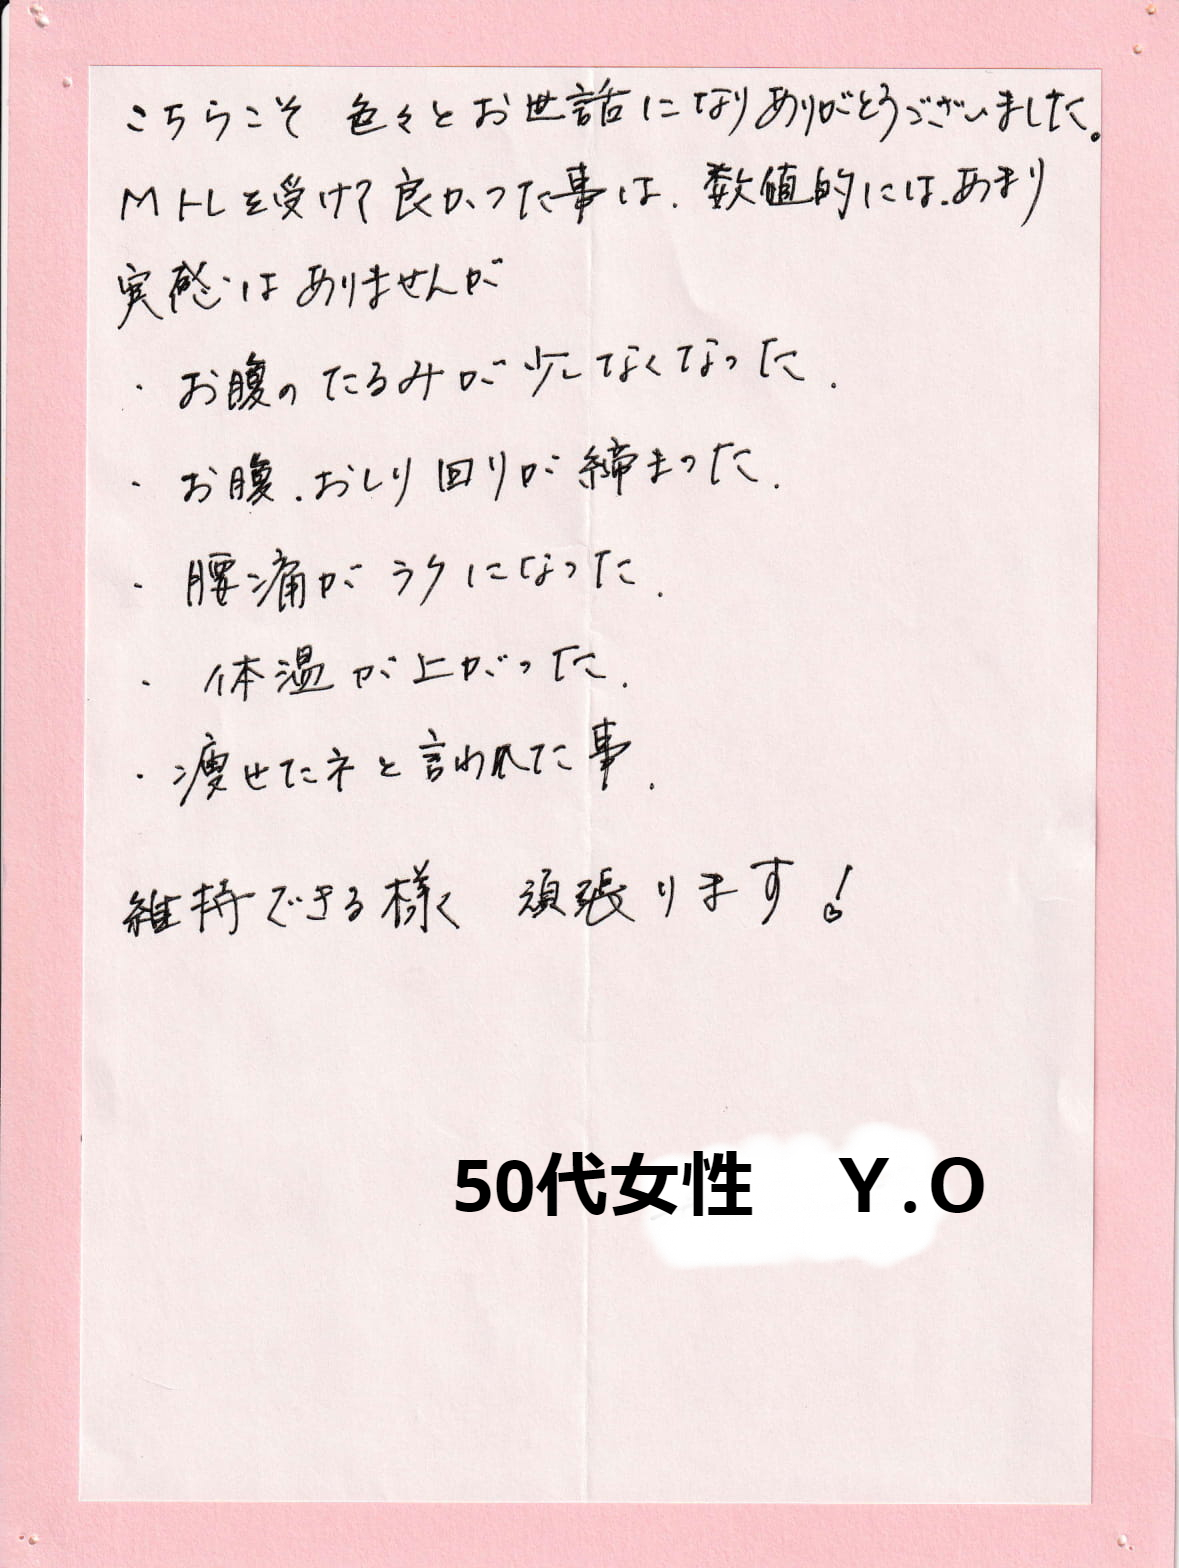 こちらこそ 色々とお世話になりありがとうございました。
Mトレを受けて良かった事は、数値的には、あまり
実感はありませんが
・お腹のたるみが少しなくなった.
・お腹、おしり回りが締まった.
・腰痛がラクになった.
・体温が上がった.
・痩せたネと言われた事.
維持できる様く 頑張ります!
50代女性 Y.O